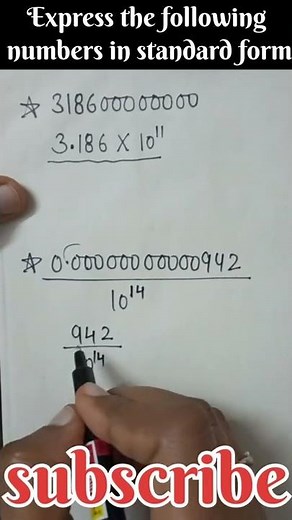 Express the following
numbers in standard form
☆ 318600000000
3.186 X 10¹¹
☆ 0.00000000000942
10¹⁴
942
10¹⁴
subscribe